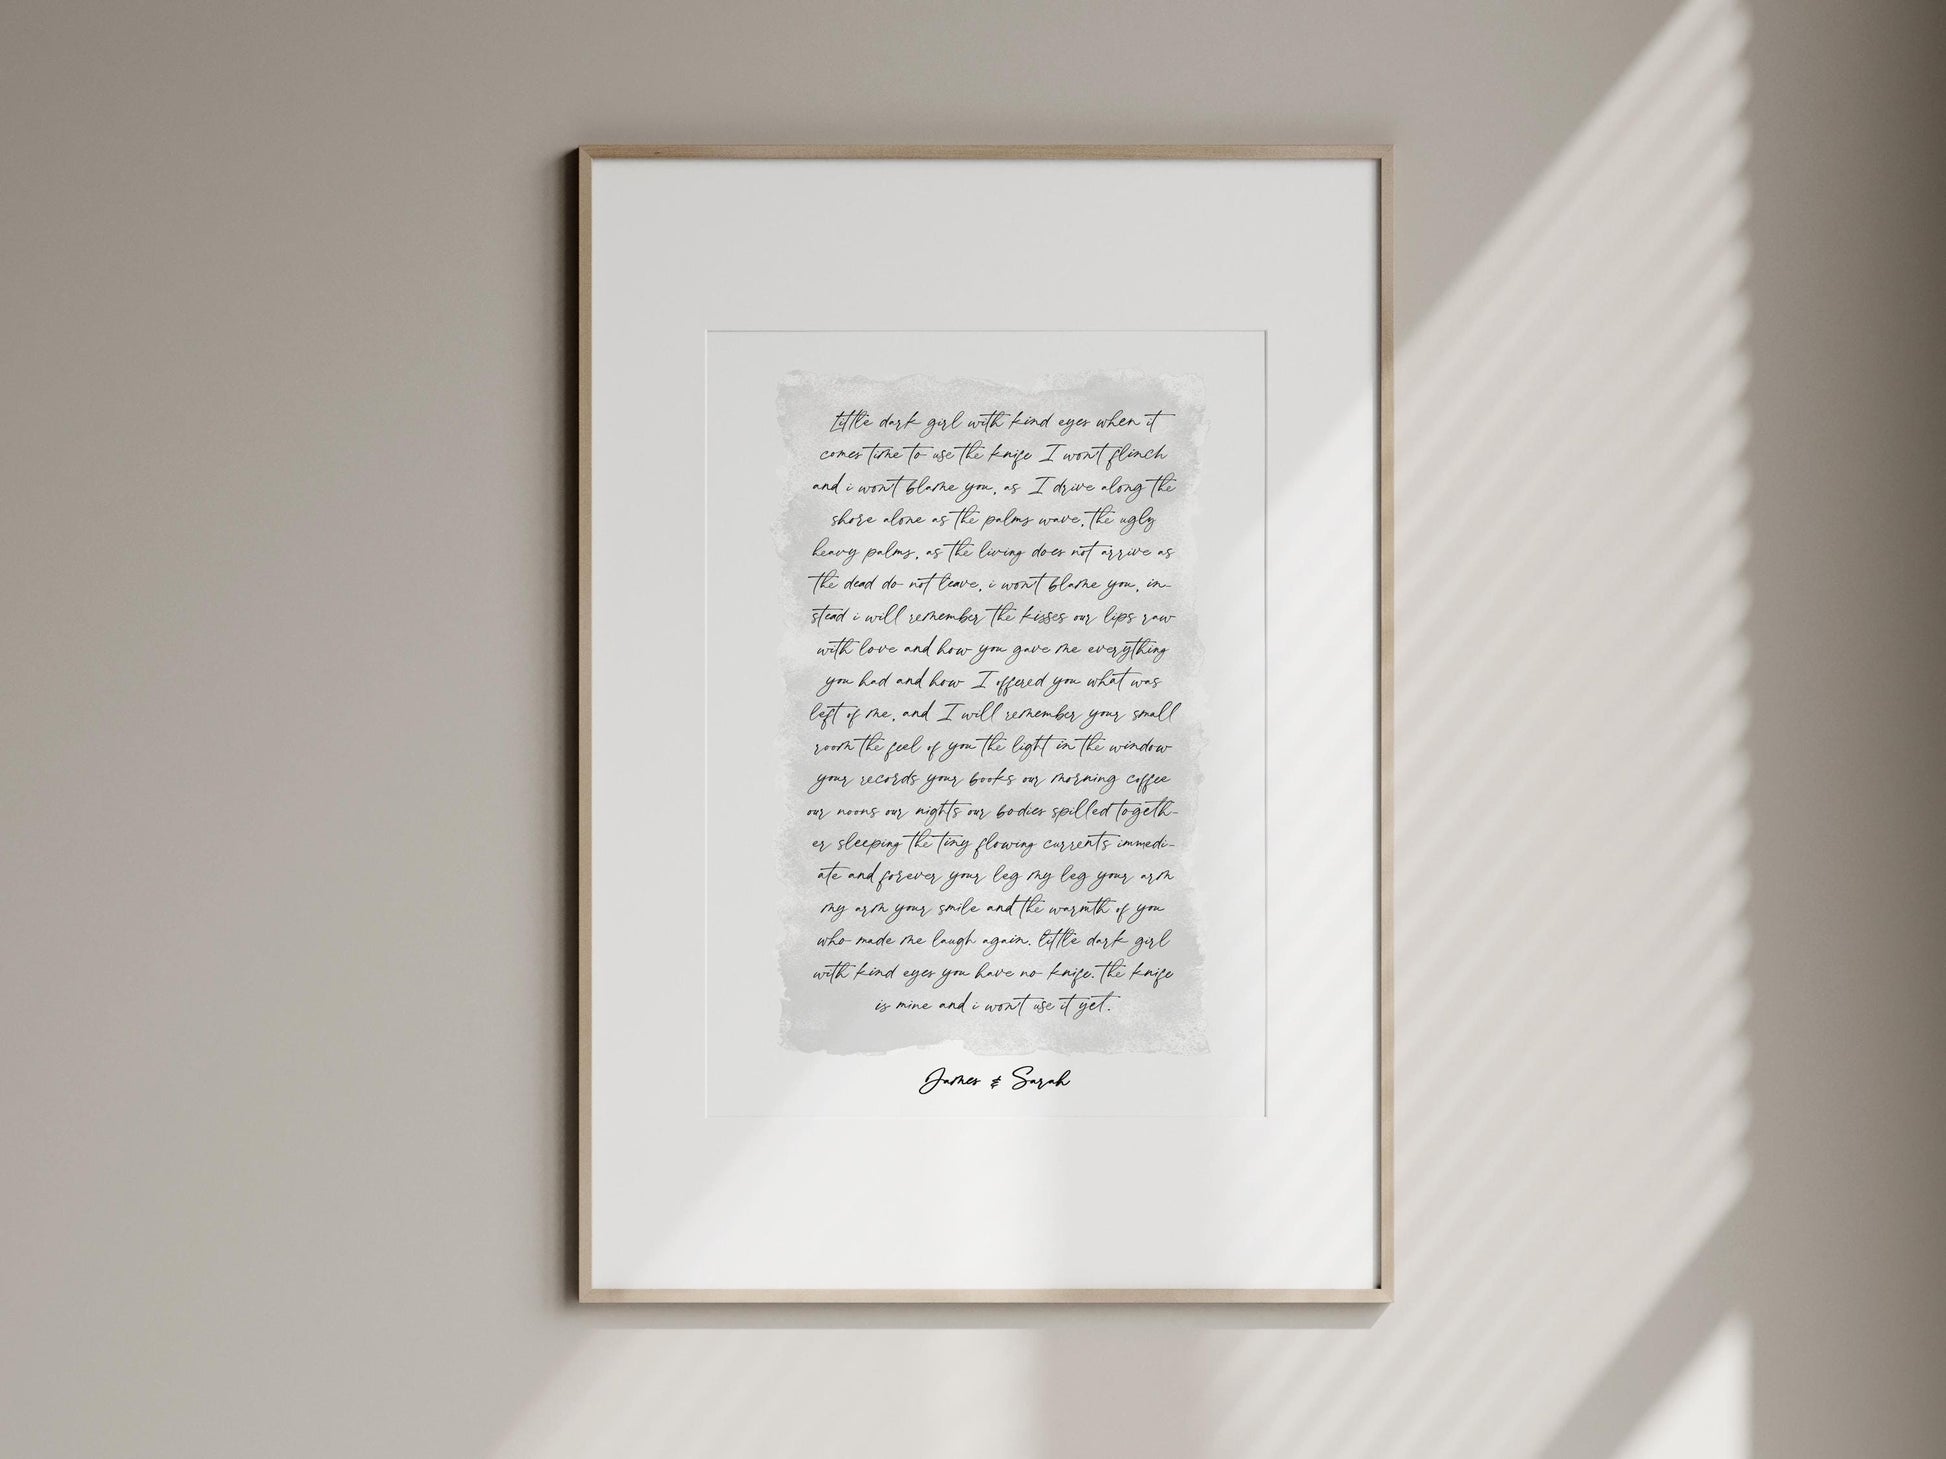 Little dark girl with kind eyes when it
comes time to use the knife I won't flinch
and i won't blame you, as I drive along the
shore alone as the palms wave, the ugly
heavy palms, as the living does not arrive as
the dead do not leave, i won't blame you, in-
stead i will remember the kisses our lips raw
with love and how you gave me everything
you had and how I offered you what was
left of me, and I will remember your small
room the feel of you the light in the window
your records your books our morning coffee
our noons our nights our bodies spilled togeth-
er sleeping the tiny flowing currents immedi-
ate and forever your leg my leg your arm
my arm your smile and the warmth of you
who made me laugh again. little dark girl
with kind eyes you have no knife. the knife
is mine and i won't use it yet.
James & Sarah